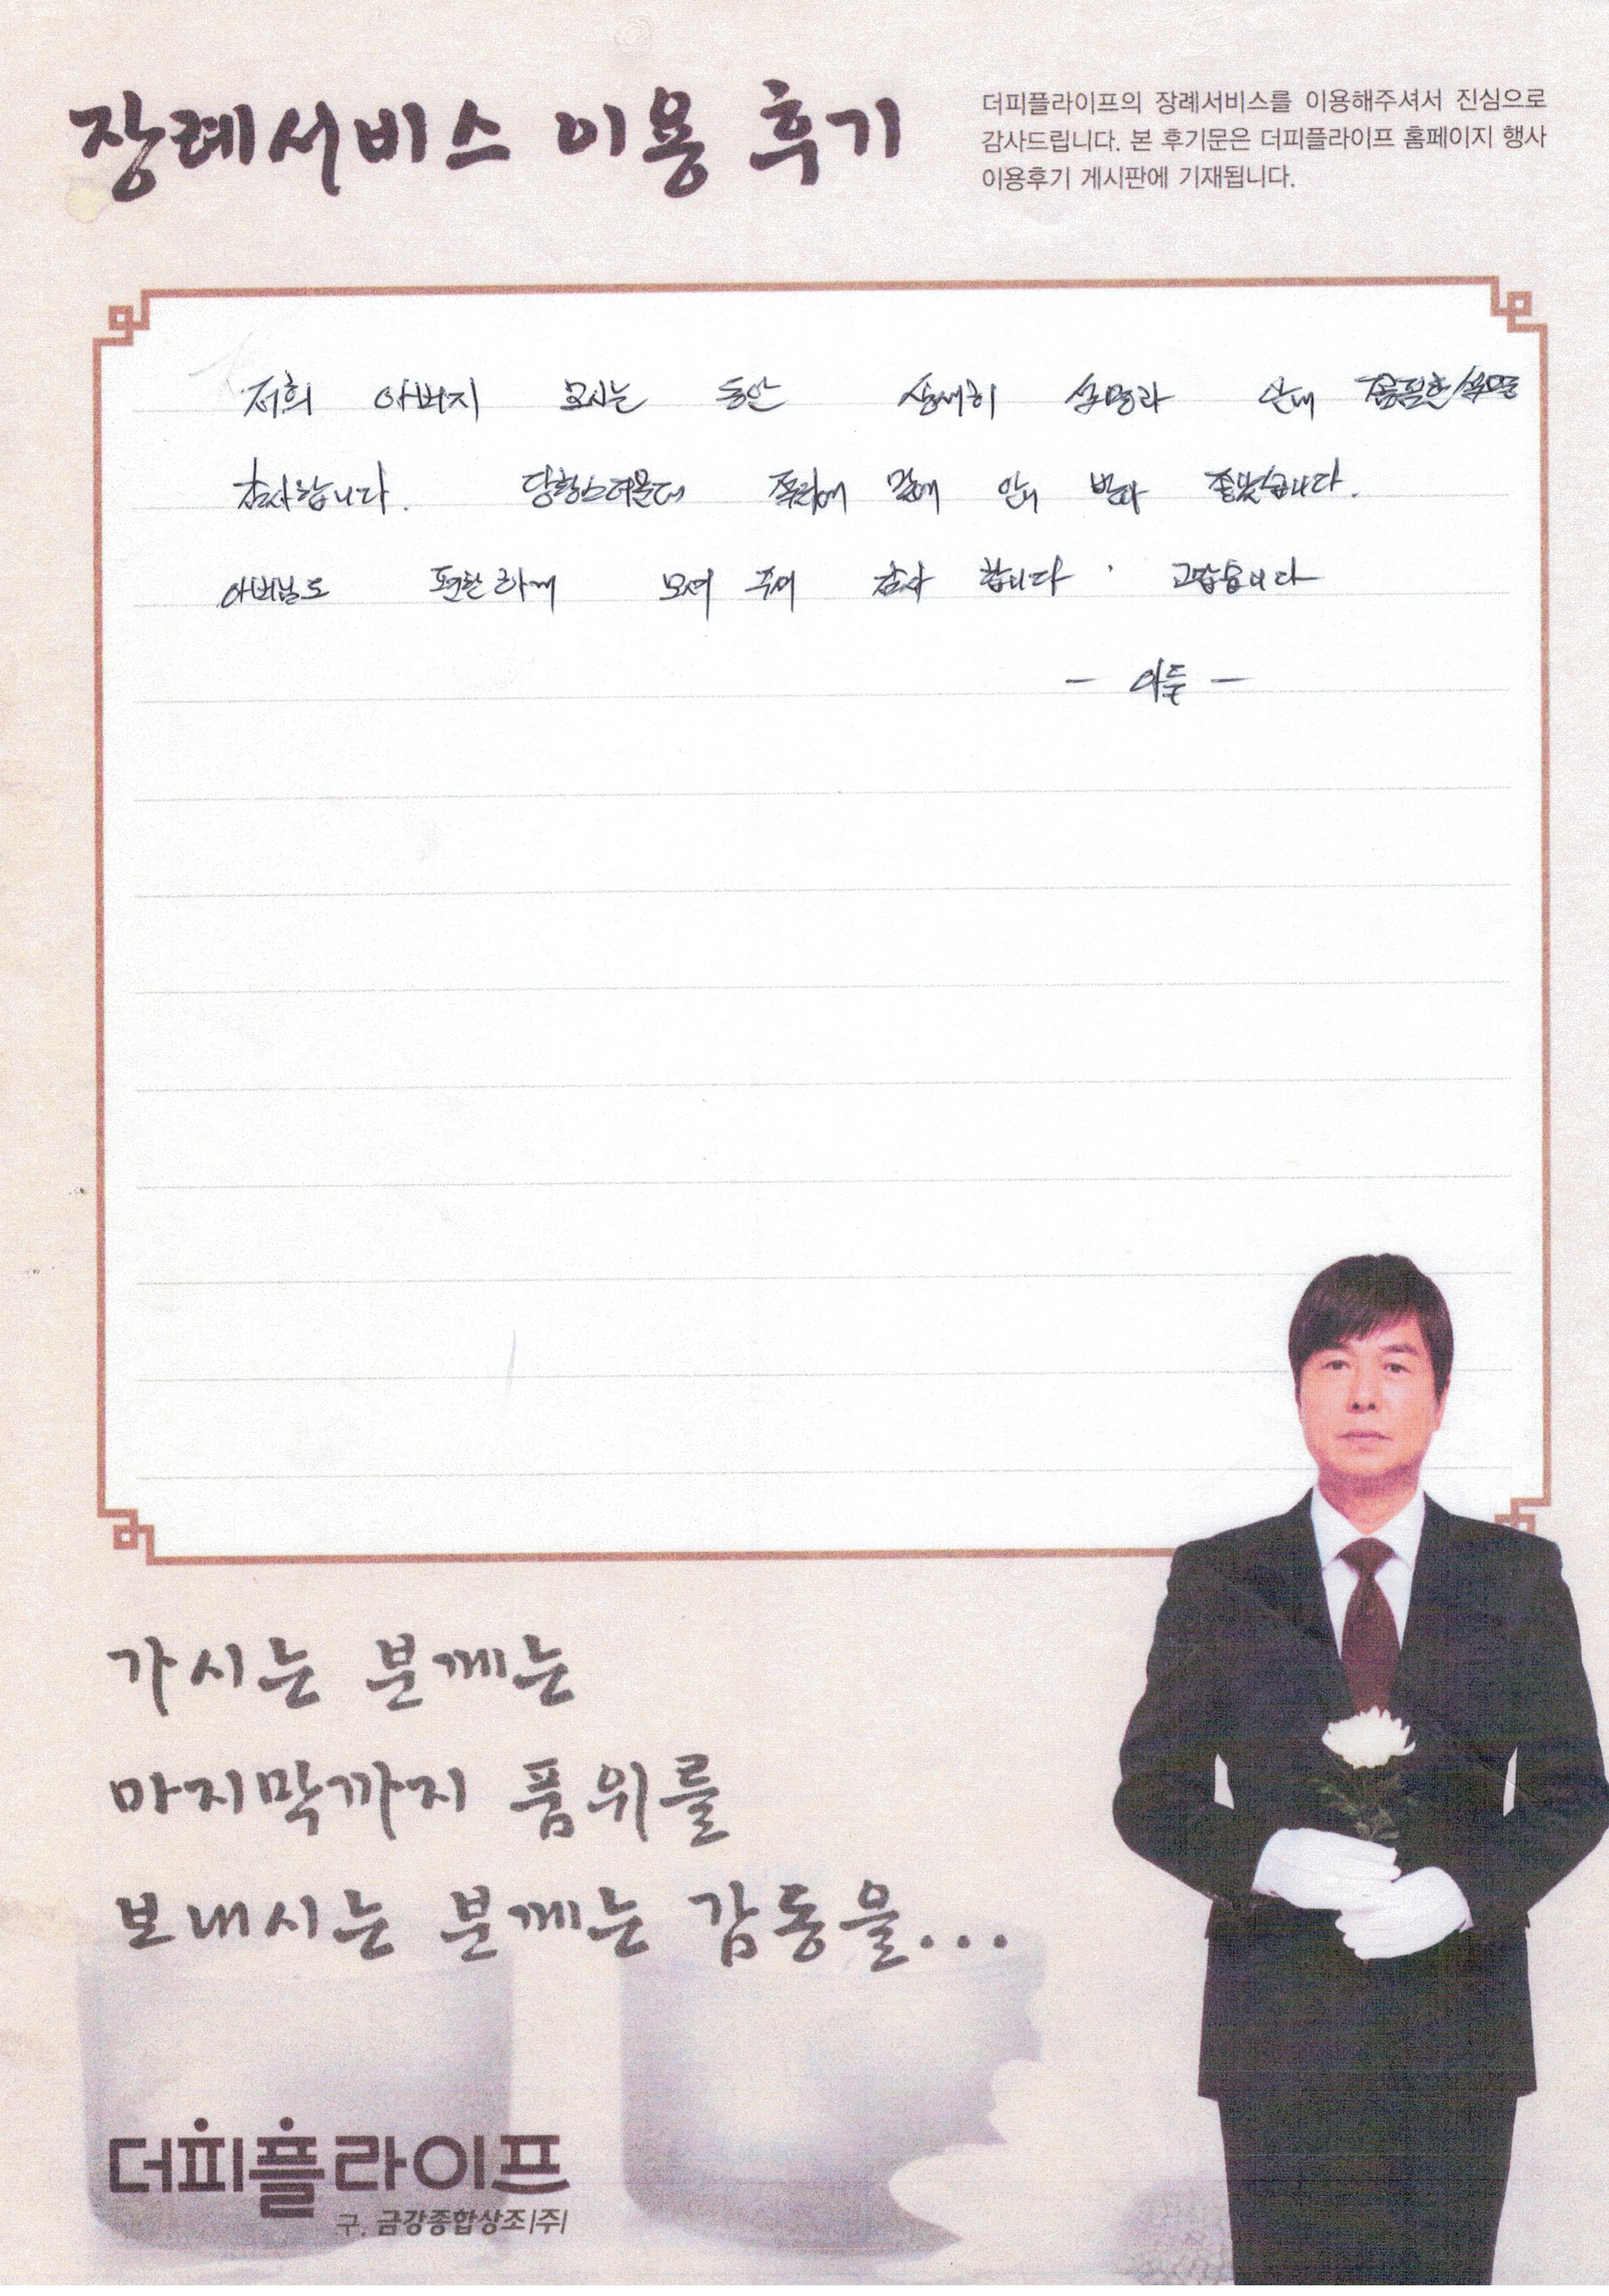 장례서비스 이용 후기
더피플라이프의 장례서비스를 이용해주셔서 진심으로
감사드립니다. 본 후기문은 더피플라이프 홈페이지 행사
이용후기 게시판에 기재됩니다.
저희 아버지 모시는 동안 상세히 설명과 안내 꼼꼼한
감사합니다. 당황스러운데 받아 좋았습니다.
아버님도 편안하게 모셔 주셔 감사 합니다. 고맙습니다
- 아들 -
가시는 분께는
마지막까지 품위를
보내시는 분께는 감동을...
더피플라이프
구. 금강종합상조(주)